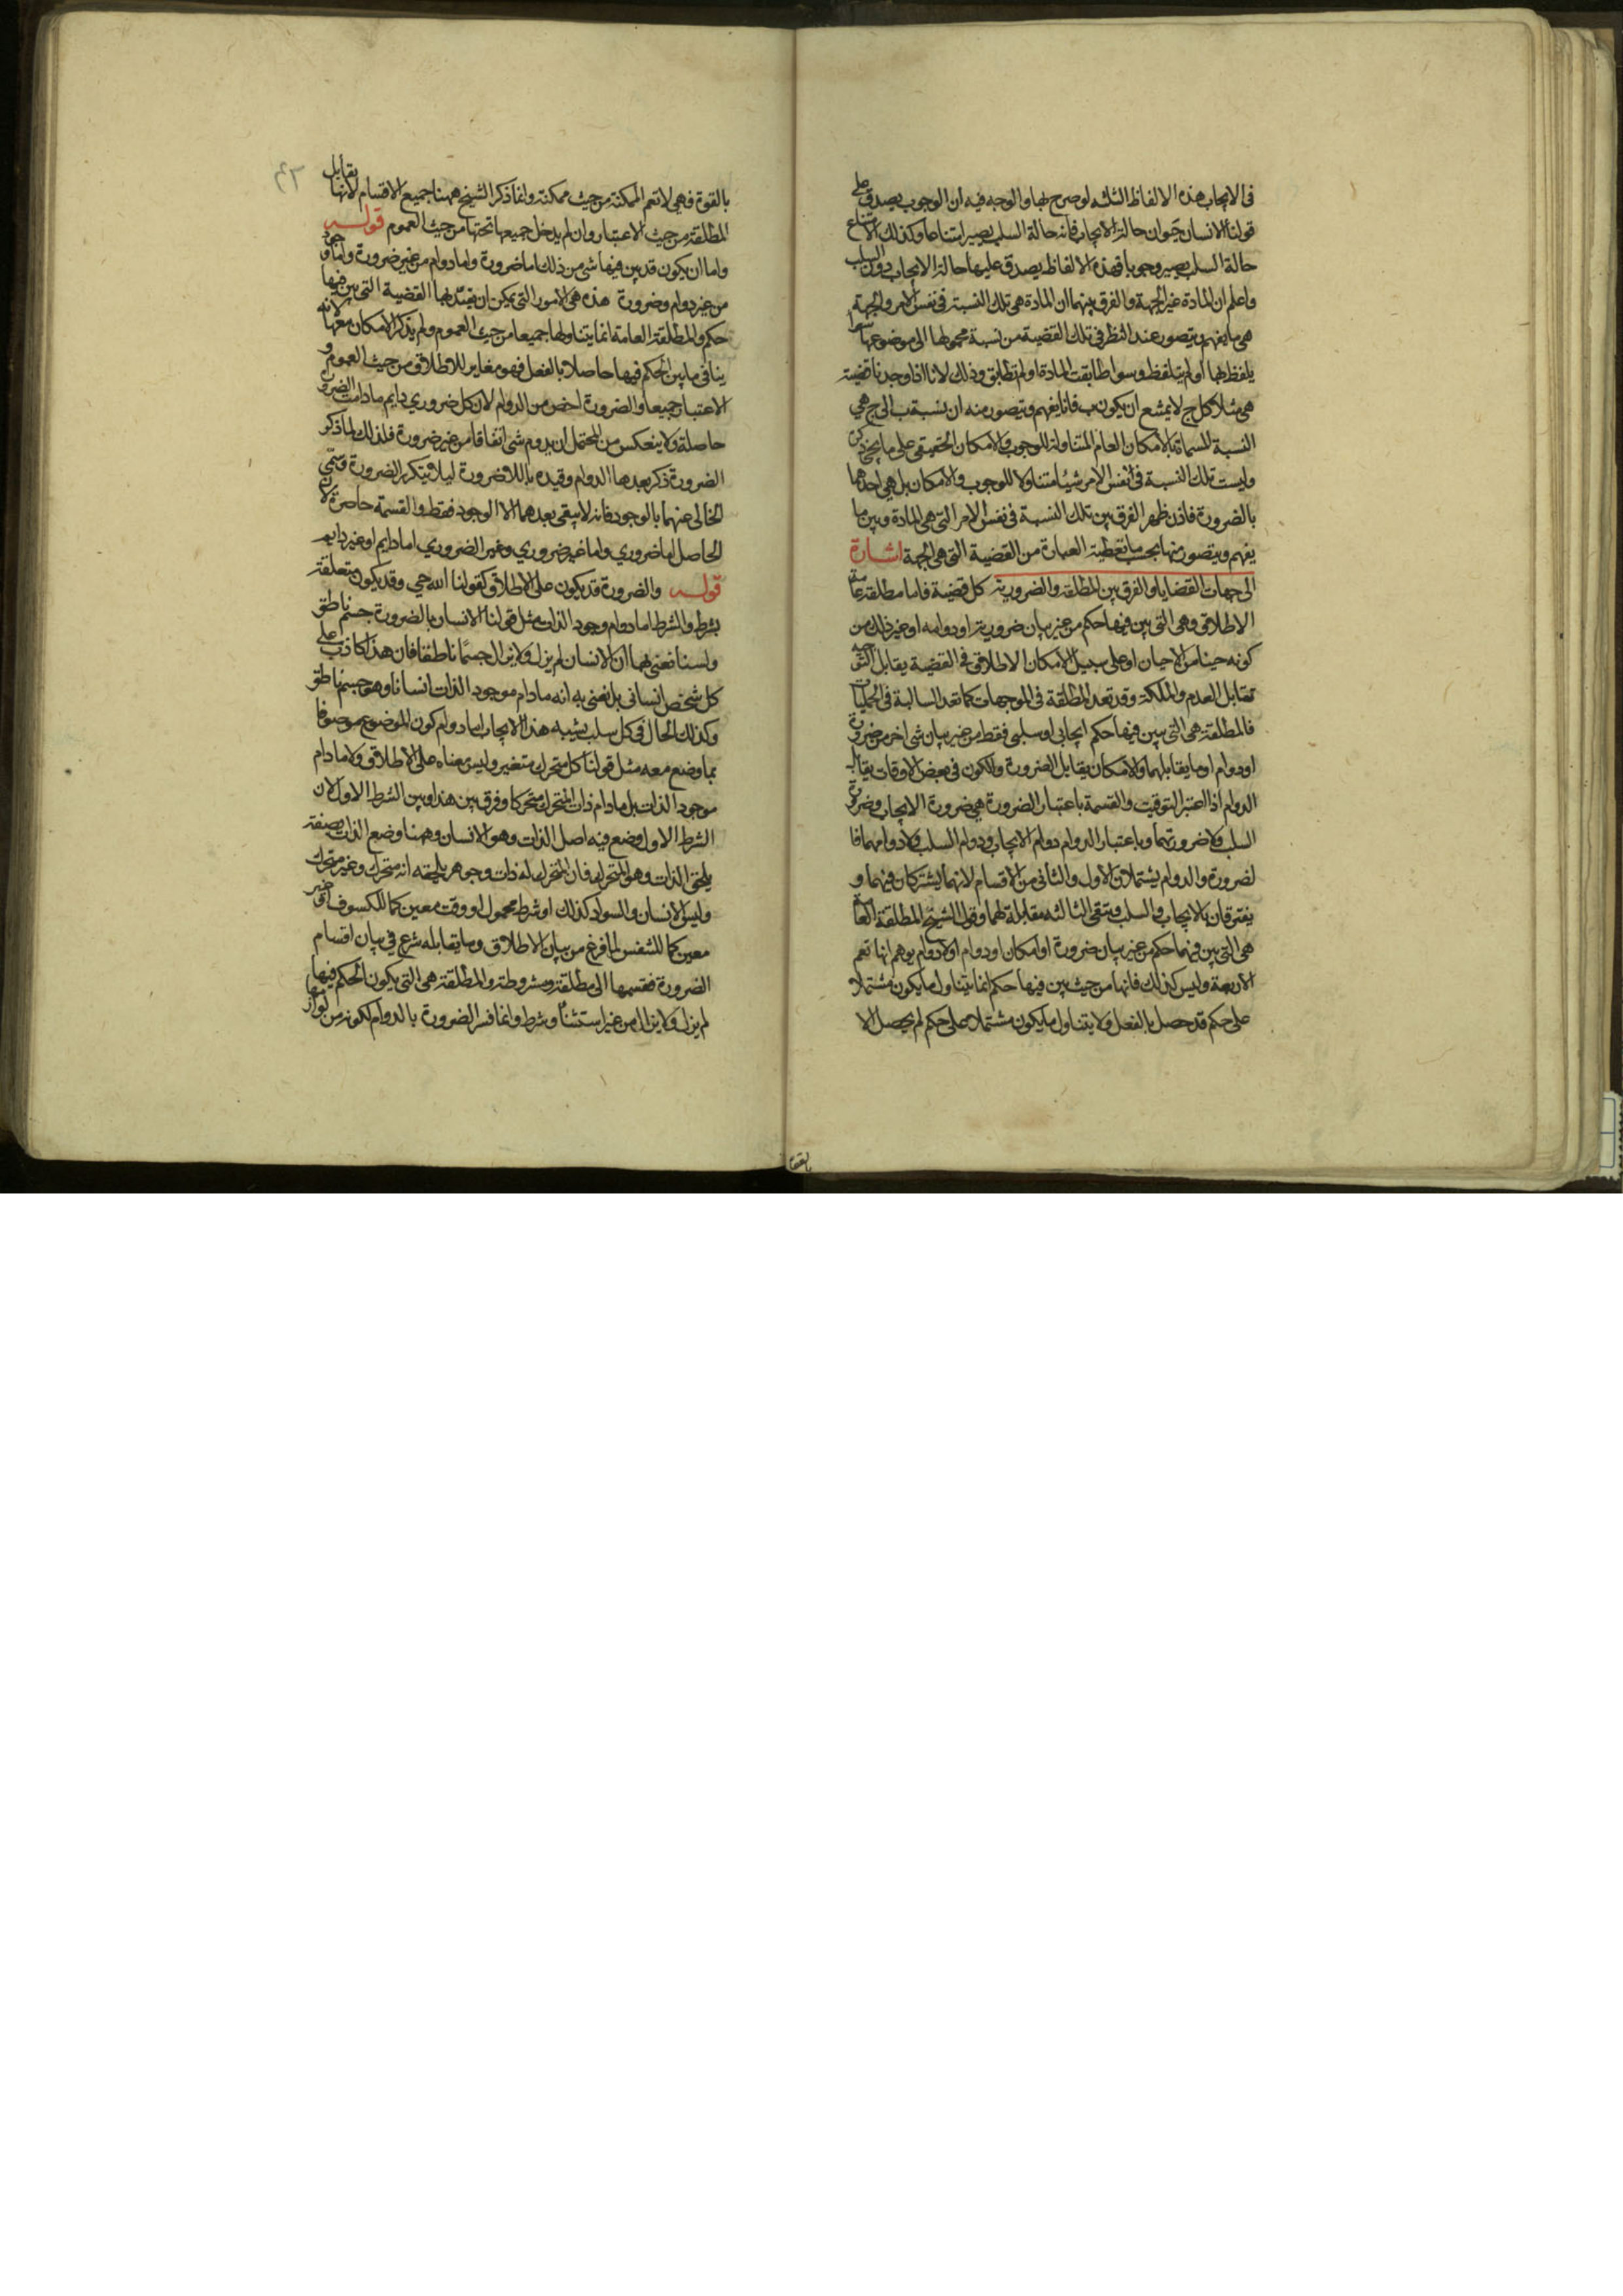 في الايجاب هذه الالفاظ الثلثه لو صرح بها والوجه فيه ان الوجوب يصدق على
قولنا الانسان حيوان حالة الايجاب فانه حالة السلب يصير امتناعا وكذلك الامتناع
حالة السلب يصير وجوبا فهذه الالفاظ يصدق عليها حالة الايجاب دون السلب
واعلم ان المادة غير الجهة والفرق بينهما ان المادة هي تلك النسبة في نفس الامر والجهة
هي ما يفهم ويتصور عند النظر في تلك القضية من نسبة محمولها الى موضوعها سوا
يلفظ بها او لم يتلفظ وسوا طابقت المادة او لم تطابق وذلك لانا اذا وجدنا قضية
هي مثلا كل ج لا يمتنع ان يكون ب فانا يفهم ويتصور منه ان نسبة ب الى ج هي
النسبة المسماة بالامكان العام المتناولة للوجوب والامكان الحقيقي على ما يجي ذكره
وليست تلك النسبة في نفس الامر شيئا متناولا للوجوب والامكان بل هي احدهما
بالضرورة فاذن ظهر الفرق بين تلك النسبة في نفس الامر التي هي المادة وبين ما
يفهم ويتصور منها بحسب ما تعطيه العبارة من القضية التي هي الجهة اشارة
الى جهات القضايا والفرق بين المطلقة والضرورية كل قضية فاما مطلقة عامة
الاطلاق وهي التي بين فيها حكم من غير بيان ضرورية او دوامه او غير ذلك من
كونه حينا من الاحيان او على سبيل الامكان الاطلاق في القضية يقابل التوجيه
تقابل العدم والملكة وقد تعد المطلقة في الموجهات كما تعد السالبة في الحمليات
فالمطلقة هي التي بين فيها حكم ايجابي او سلبي فقط من غير بيان شي اخر من ضرورة
او دوام او ما يقابلهما والامكان يقابل الضرورة والكون في بعض الاوقات يقابل
الدوام اذا اعتبر التوقيت والقسمة باعتبار الضرورة هي ضرورة الايجاب وضرورة
السلب ولا ضرورتهما وباعتبار الدوام دوام الايجاب ودوام السلب ولا دوامهما فا
لضرورة والدوام يشتملان الاول والثاني من الاقسام لانهما يشتركان فيهما و
يفترقان بالايجاب والسلب وتبقى الثالثه مقابلة لهما وقول الشيخ المطلقة العامة
هي التي بين فيها حكم من غير بيان ضرورة او امكان او دوام او لا دوام يوهم انها تعم
الاربعة وليس كذلك فانها من حيث بين فيها حكم انما يتناول ما يكون مشتملا
على حكم قد حصل بالفعل ولا يتناول ما يكون مشتملا على حكم لم يحصل الا
بالقوة
٤٣
بالقوة فهي لا تعم الممكنة من حيث ممكنة وانما ذكر الشيخ ههنا جميع الاقسام لانها يقابل
المطلقة من حيث الاعتبار وان لم يدخل جميعها تحتها من حيث العموم قوله
واما ان يكون قد بين فيها شي من ذلك اما ضرورة واما دوام من غير ضرورة واما وجود
من غير دوام وضرورة هذه هي الامور التي يمكن ان يقيد بها القضية التي بين فيها
حكم والمطلقة العامة انما يتناولها جميعا من حيث العموم ولم يذكر الامكان معها لانه
ينافي ما بين الحكم فيها حاصلا بالفعل فهو مغاير للاطلاق من حيث العموم و
الاعتبار جميعا والضرورة اخص من الدوام لان كل ضروري دايم ما دامت الضرورة
حاصلة ولا ينعكس من المحتمل ان يدوم شي اتفاقا من غير ضرورة فلذلك لما ذكر
الضرورة ذكر بعدها الدوام وقيده باللاضرورة ليلا يتكرر الضرورة وسمى
الخالي عنهما بالوجود فانه لا يبقى بعدهما الا الوجود فقط والقسمة حاصرة لان
الحاصل اما ضروري واما غير ضروري وغير الضروري اما دايم او غير دايم
قوله والضرورة قد يكون على الاطلاق كقولنا الله حي وقد يكون متعلقة
بشرط والشرط اما دوام وجود الذات مثل قولنا الانسان بالضرورة جسم ناطق
ولسنا نعني بهما ان الانسان لم يزل ولا يزال جسما ناطقا فان هذا كاذب على
كل شخص انساني بل نعني به انه ما دام موجود الذات انسانا وهو جسم ناطق
وكذلك الحال في كل سلب يشبه هذا الايجاب اما دوام كون الموضوع موصوفا
بما وضع معه مثل قولنا كل متحرك متغير وليس معناه على الاطلاق ولا ما دام
موجود الذات بل ما دام ذات المتحرك متحركا وفرق بين هذا وبين الشرط الاول لان
الشرط الاول وضع فيه اصل الذات وهو الانسان وههنا وضع الذات بصفة
يلحق الذات وهو المتحرك فان المتحرك له ذات وجوهر يلحقه انه متحرك وغير متحرك
وليس الانسان والسواد كذلك او شرط محمول او وقت معين كما للكسوف او غير
معين كما للتنفس لما فرغ من بيان الاطلاق وما يقابله شرع في بيان اقسام
الضرورة فقسمها الى مطلقة ومشروطة والمطلقة هي التي يكون الحكم فيها
لم يزل ولا يزال من غير استثناء وشرط وانما فسر الضرورة بالدوام لكونه من لوازمها